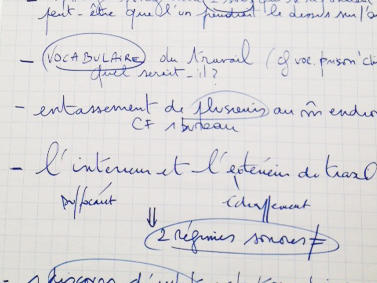 peut-être que l'un prendrait le dessus sur l'a
- VOCABULAIRE du travail (cf voc. prison
quel serait-il?
- entassement de plusieurs au m̂ endro
CF 1 bureau
- l'intérieur et l'extérieur du travail
suffocant échappement
⇓
2 régimes sonores ≠